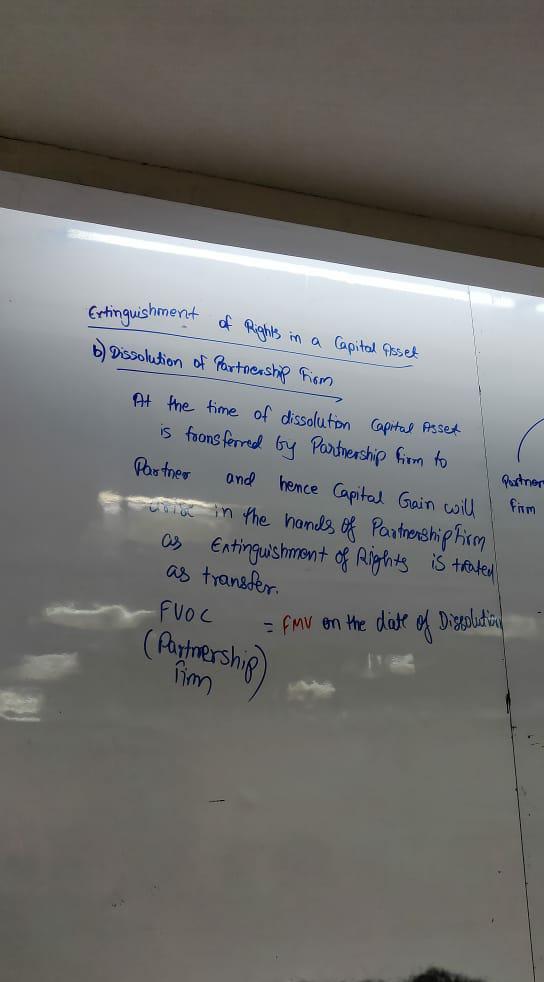 Extinguishment of Rights in a Capital Asset
b) Dissolution of Partnership Firm
At the time of dissolution Capital Asset
is transferred by Partnership firm to
Partner and hence Capital Gain will
arise in the hands of Partnership Firm
as Extinguishment of Rights is treated
as transfer.
FVOC = FMV on the date of Dissolution
(Partnership
firm)
Partner
firm